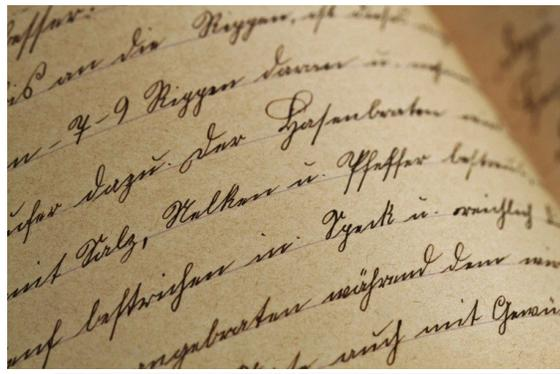 esser.
is an die Rippen, ist
n - 7-9 Rippen daran u.
ufer dazu. Der Hasenbraten
mit Salz, Nelken u. Pfeffer bestreut,
enf bestrichen in Speck u. reichlich
angebraten während dem
auch mit Gewü